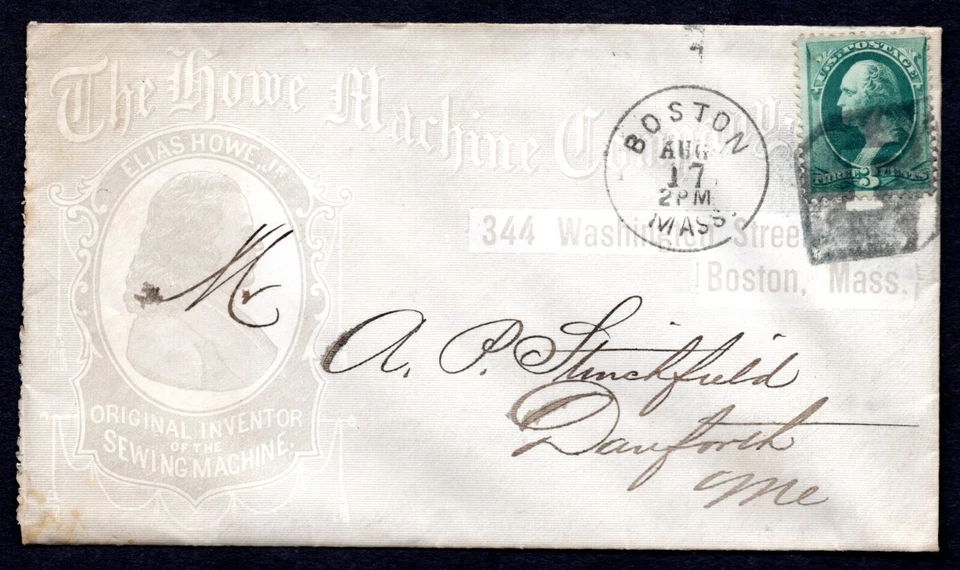 The Howe Machine Company.
ELIAS HOWE, Jr.
ORIGINAL INVENTOR
OF THE
SEWING MACHINE.
BOSTON
AUG
17
2PM
MASS.
U.S. POSTAGE
THREE 3 CENTS
344 Washington Street
Boston, Mass.
Mr
A. P. Stinchfield
Danforth
Me